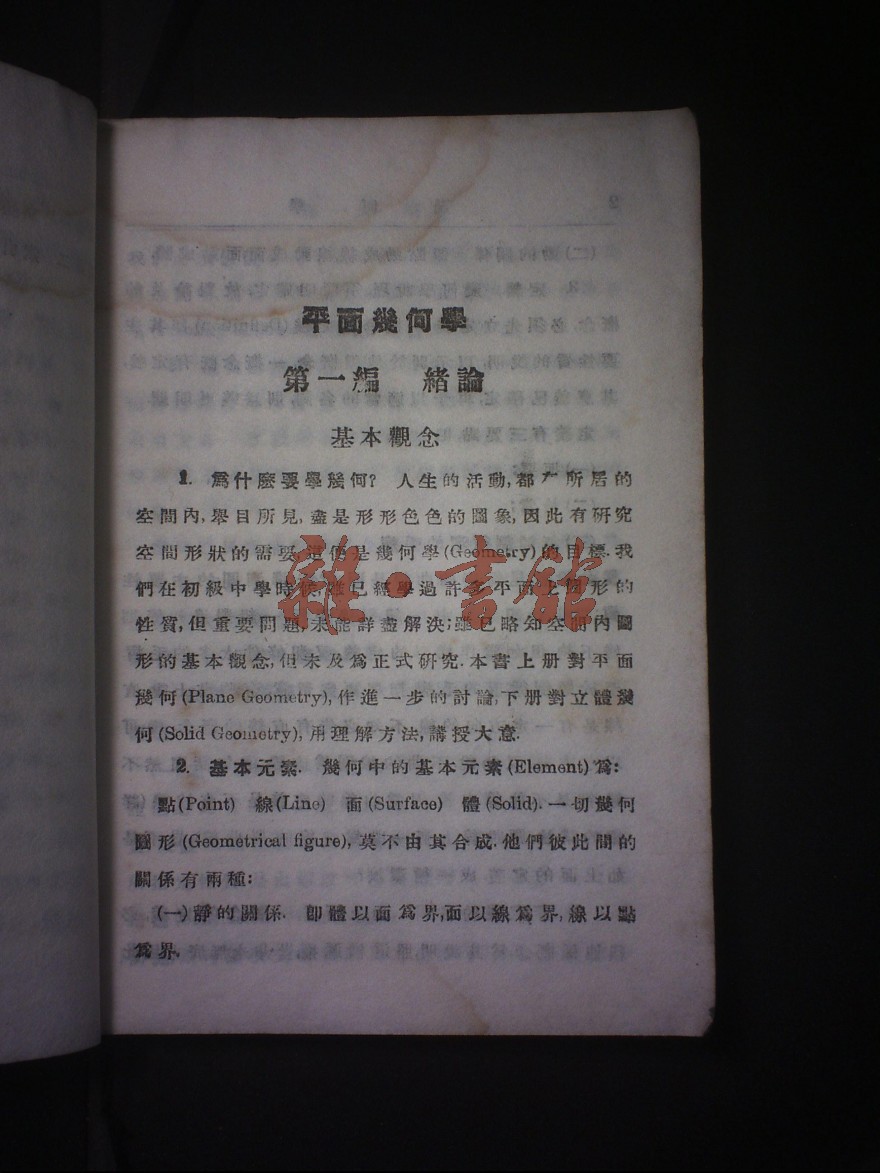 平面幾何學
第一編 緒論
基本觀念
1. 爲什麼要學幾何? 人生的活動,都在所居的
空間內,舉目所見,盡是形形色色的圖象,因此有研究
空間形狀的需要,這便是幾何學(Geometry)的目標.我
們在初級中學時候,雖已經學過許多平面上圖形的
性質,但重要問題,未能詳盡解決;雖已略知空間內圖
形的基本觀念,但未及爲正式研究.本書上册對平面
幾何(Plane Geometry),作進一步的討論,下册對立體幾
何(Solid Geometry),用理解方法,講授大意.
2. 基本元素. 幾何中的基本元素(Element)爲:
點(Point) 線(Line) 面(Surface) 體(Solid).一切幾何
圖形(Geometrical figure),莫不由其合成.他們彼此間的
關係有兩種:
(一)靜的關係. 卽體以面爲界,面以線爲界,線以點
爲界.
雜·書館